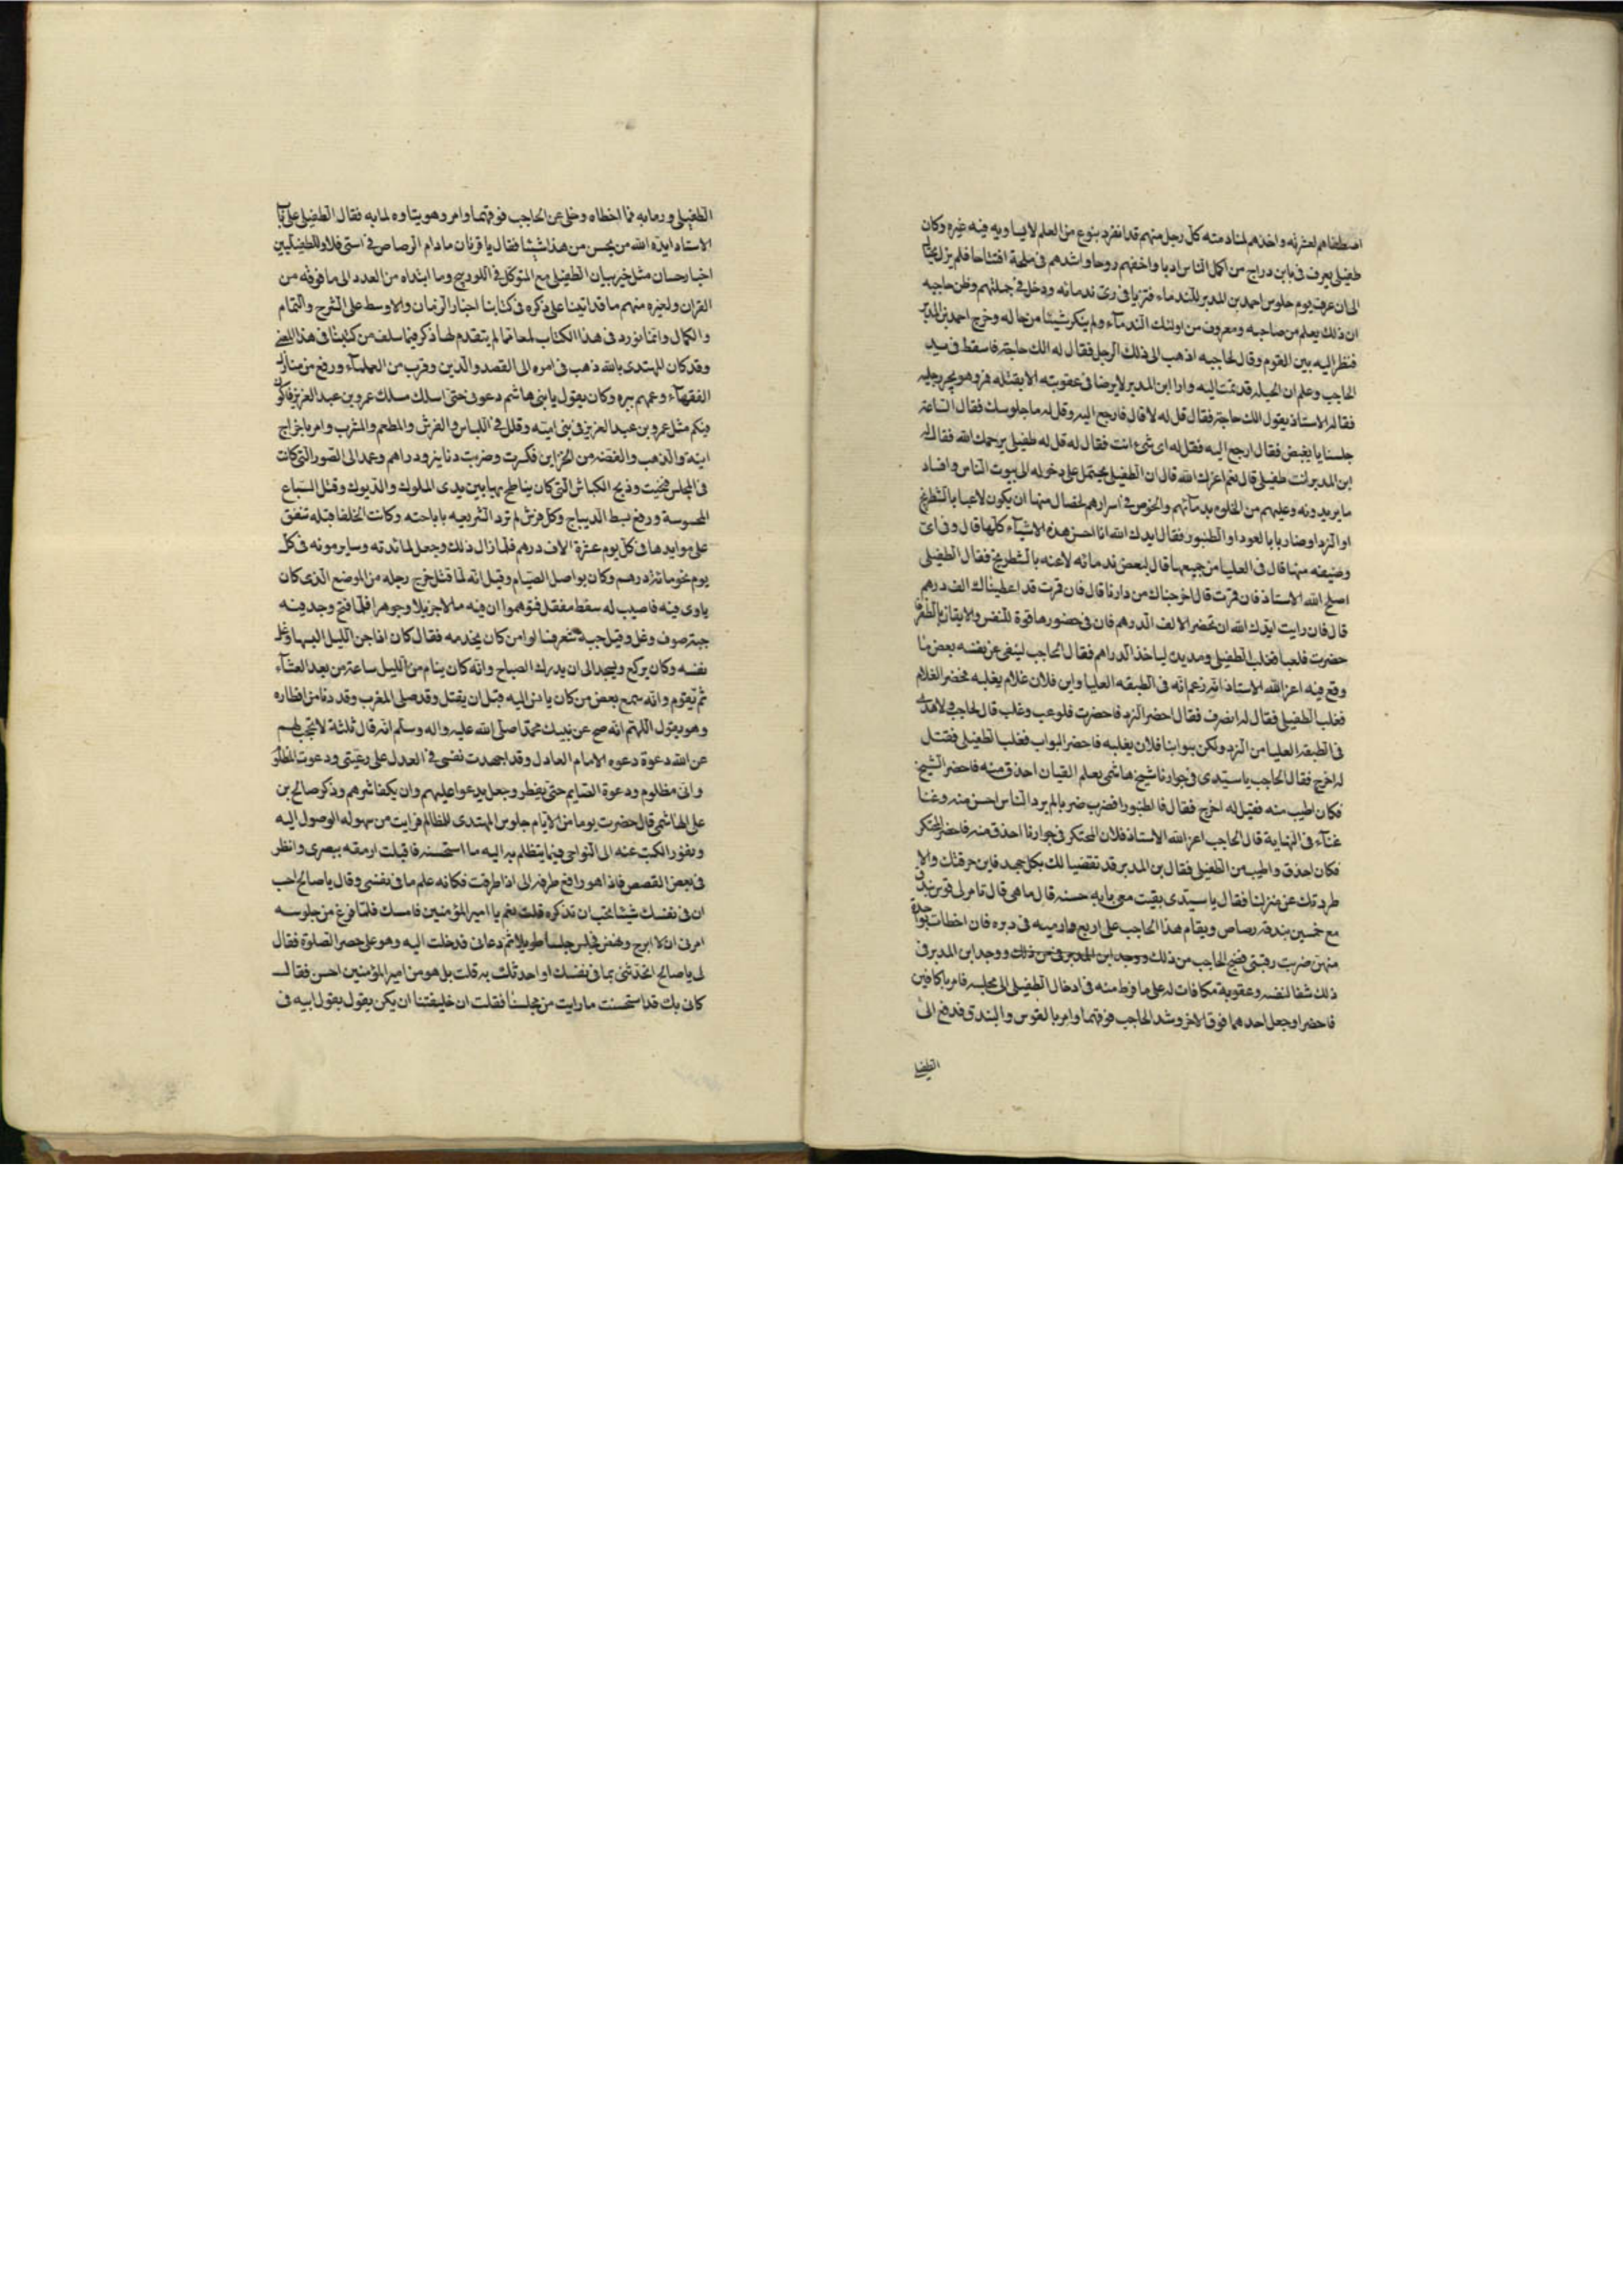 اصطفاهم لعشرته واخذهم لمنادمته كل رجل منهم قد انفرد بنوع من العلم لا يساويه فيه غيره وكان
طفيلي يعرف في بابن دراج من اكمل الناس ادبا واخفهم روحا واشدهم في ملحة افتتاحا فلم يزل يحتال
الى ان عرف يوم جلوس احمد بن المدبر للندماء فتزيا في زي ندمائه ودخل في جملتهم وظن حاجبه
ان ذلك بعلم من صاحبه ومعروف من اولئك الندماء ولم ينكر شيئا من حاله وخرج احمد بن المدبر
فنظر اليه بين القوم وقال لحاجبه اذهب الى ذلك الرجل فقال له الك حاجة فاسقط في يد
الحاجب وعلم ان الحيلة قد تمت اليه وان ابن المدبر لا يرضا في عقوبته الا بقتله فمر وهو يجر رجليه
فقال له الاستاذ يقول الك حاجة فقال قل له لا قال فارجع اليه وقل له ما جلوسك فقال الساعة
جلسنا يا بغيض فقال ارجع اليه فقل له اى شيء انت فقال له قل له طفيلي يرحمك الله فقال له
ابن المدبر انت طفيلي قال نعم اعزك الله قال ان الطفيلي يحتمل على دخوله الى بيوت الناس وافساد
ما يريدونه وعليهم من الخلوه بندمآئهم والخوض في اسرارهم لخصال منها ان يكون لاعبا بالشطرنج
او النرد او ضاربا بالعود او الطنبور فقال ايدك الله انا احسن هذه الاشيآء كلها قال وفى اى
وضيفه منها قال في العليا من جميعها قال لبعض ندمائه لاعبه بالشطرنج فقال الطفيلي
اصلح الله الاستاذ فان قمرت قال اخرجناك من دارنا قال فان قمرت قد اعطيناك الف درهم
قال فان رايت ايدك الله ان تحضر الالف الدرهم فان في حضورها قوة للنفس والايقان بالظفر
حضرت فلعبا فغلب الطفيلي ومد يده لياخذ الدراهم فقال الحاجب لينفى عن نفسه بعض ما
وقع فيه اعز الله الاستاذ انه زعم انه في الطبقه العليا وابن فلان غلام يغلبه فحضر الغلام
فغلب الطفيلي فقال له انصرف فقال احضر النرد فاحضرت فلوعب وغلب قال لحاجب لا هذا
في الطبقة العليا من النرد ولكن بوابنا فلان يغلبه فاحضر البواب فغلب الطفيلي فقتل
له اخرج فقال الحاجب يا سيدى في جوارنا شيخ هاشمى يعلم القيان احذق منه فاحضر الشيخ
فكان اطيب منه فقيل له اخرج فقال فالطنبور فضرب ضربا لم ير الناس احسن منه وغنا
غنآء في النهاية قال الحاجب اعز الله الاستاذ فلان المحتكر في جوارنا احذق منه فاحضر المحتكر
فكان احذق واطيب من الطفيلي فقال بن المدبر قد تقضينا لك بكل جهد فابن حرفتك والا
طردتك عن منزلنا فقال يا سيدى بقيت معى بايه حسنه قال ما هى قال تامر لى قوس بندق
مع خمسين بندقة رصاص ويقام هذا الحاجب على اربع وارميه في دبره فان اخطات بواحدة
منهن ضربت رقبتى فضج الحاجب من ذلك ووجد ابن المدبر في
ذلك شفا لنفسه وعقوبة مكافات له على ما فرط منه في ادخال الطفيلي الى مجلسه فامر باكافين
فاحضرا وجعل احدهما فوق الاخر وشد الحاجب فوقهما وامر بالقوس والبندق فدفع الى
الطفيلي
الطفيلي ورما به فما اخطاه وخلى عن الحاجب فوقهما وامر وهو يتاوه لما به فقال الطفيلي على باب
الاستاد ايده الله من يحسن من هذا شيئا فقال يا قرنان ما دام الرصاص في استى فلا وللطفيليين
اخبار حسان مثل خبر بيان الطفيلي مع المتوكل في اللوزينج وما ابتداه من العدد الى ما فوقه من
القران ولغيره منهم ما قد اتينا على ذكره في كتابنا اخبار الزمان والاوسط على الشرح والتمام
والكمال وانما نورد في هذا الكتاب لمعا مما لم يتقدم لها ذكر فيما سلف من كتبنا في هذا المعنى
وقد كان المهتدى بالله ذهب في امره الى القصد والدين وقرب من العلمآء ورفع من منازل
الفقهآء وعمهم ببره وكان يقول يا بنى هاشم دعونى حتى اسلك مسلك عمرو بن عبد العزيز فاكون
فيكم مثل عمرو بن عبد العزيز في بنى امية وقلل في اللباس والفرش والمطعم والمشرب وامر باخراج
انية الذهب والفضة من الخزاين فكسرت وضربت دنانير ودراهم وعمد الى الصور التى كانت
في المجلس فمحيت وذبح الكباش التى كان يناطح بها بين يدى الملوك والديوك وقتل السباع
المحبوسة ورفع بسط الديباج وكل فرش لم ترد الشريعه باباحته وكانت الخلفا قبله تنفق
على موايدها في كل يوم عشرة الاف درهم فلما زال ذلك وجعل لمائدته وساير مونه في كل
يوم نحو مائة درهم وكان يواصل الصيام وقيل انه لما قتل خرج رحله من الموضع الذى كان
ياوى فيه فاصيب له سفط مقفل فتوهموا ان فيه مالا جزيلا وجوهرا فلما فتح وجد فيه
جبة صوف وغل وقيل جبة شعر فسالوا من كان يخدمه فقال كان اذا جن الليل لبسها وغل
نفسه وكان يركع ويسجد الى ان يدرك الصباح وانه كان ينام من الليل ساعة من بعد العشآء
ثم يقوم وانه سمع بعض من كان يانس اليه قبل ان يقتل وقد صلى المغرب وقد دنا من افطاره
وهو يقول اللهم انه صح عن نبيك محمدا صلى الله عليه واله وسلم انه قال ثلثة لا تحجب لهم
عن الله دعوة دعوه الامام العادل وقد اجهدت نفسى في العدل على رعيتى ودعوت المظلوم
وانى مظلوم ودعوة الصايم حتى يفطر وجعل يدعوا عليهم وان يكفا شرهم وذكر صالح بن
على الهاشمى قال حضرت يوما من الايام جلوس المهتدى للمظالم فرايت من سهوله الوصول اليه
ونفوذ الكتب عنه الى النواحى فيما يتظلم به اليه ما استحسنه فاقبلت ارمقه ببصرى وانظر
في بعض القصص فاذا هو رافع طرفه الى اذا طرفت فكانه علم ما في نفسى وقال يا صالح احب
ان في نفسك شيئا تحب ان تذكره قلت نعم يا امير المؤمنين فامسك فلما فرغ من جلوسه
امر في ان لا ابرح ونهض فجلس جلسا طويلا ثم دعانى فدخلت اليه وهو على حصر الصلوة فقال
لى يا صالح اتحدثنى بما في نفسك او احدثك به قلت بل هو من امير المؤمنين احسن فقال
كانى بك قد استحسنت ما رايت من مجلسنا فقلت ان خليفتنا ان يكن يقول بقول ابيه في